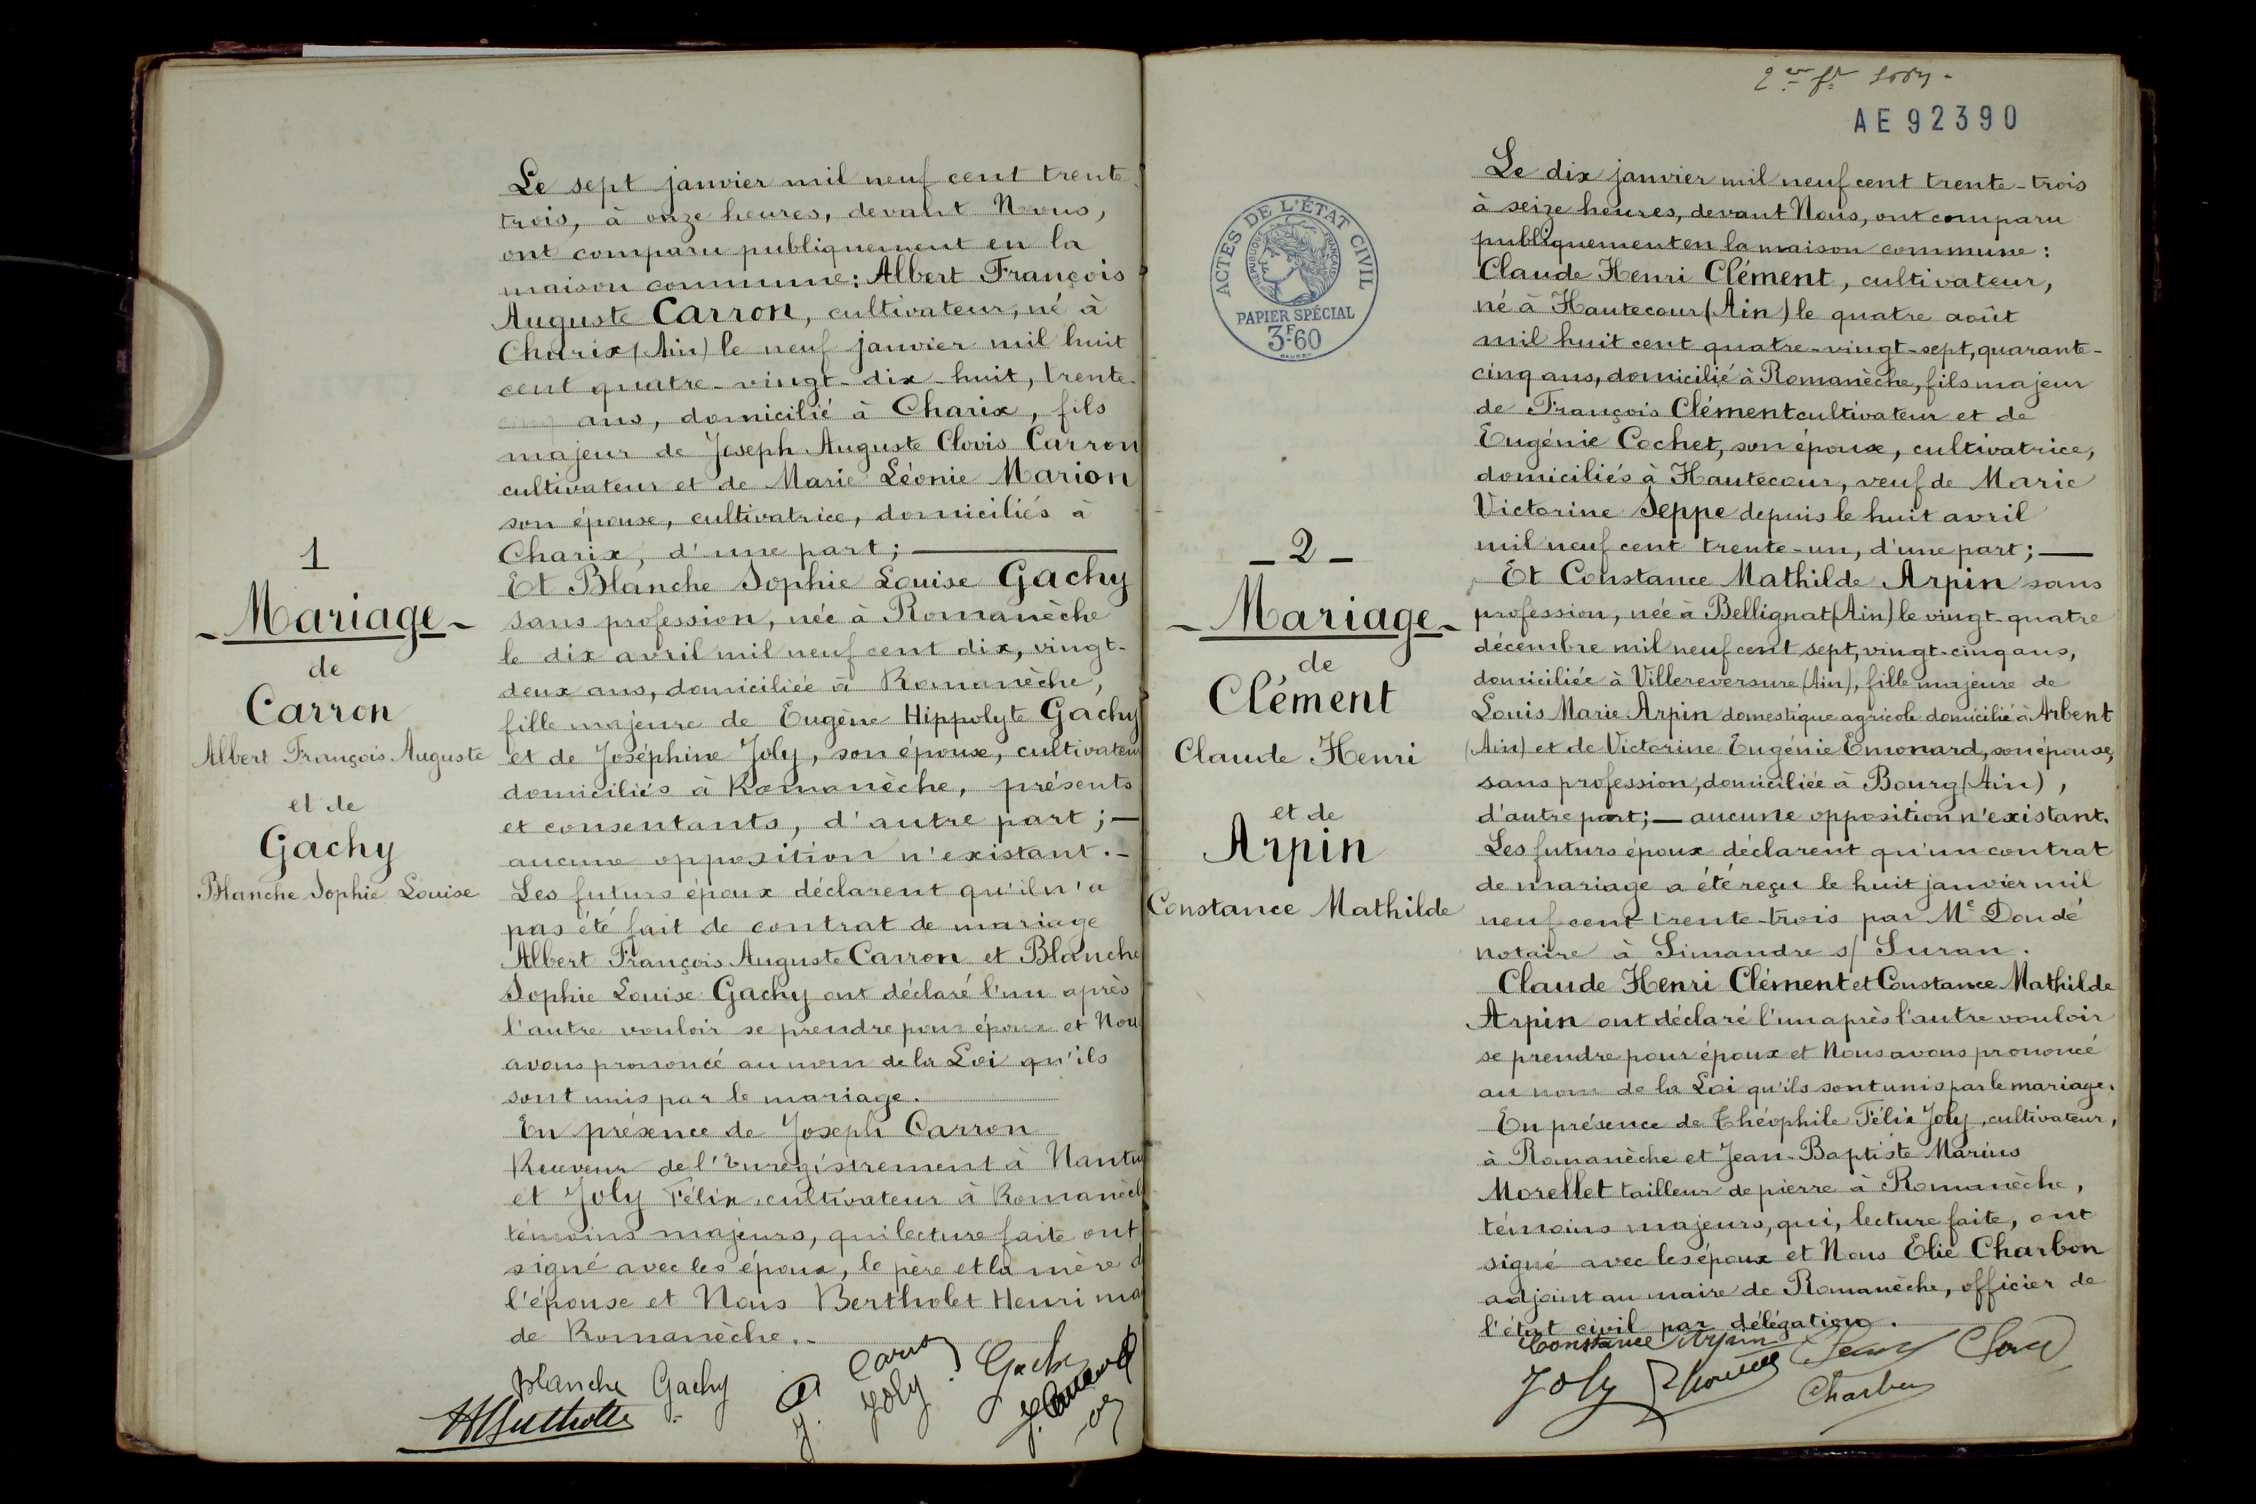 1
Mariage
de
Carron
Albert François Auguste
et de
Gachy
Blanche Sophie Louise
Le sept janvier mil neuf cent trente
trois, à onze heures, devant Nous,
ont comparu publiquement en la
maison commune: Albert François
Auguste Carron, cultivateur, né à
Charix (Ain) le neuf janvier mil huit
cent quatre-vingt-dix-huit, trente-
cinq ans, domicilié à Charix, fils
majeur de Joseph Auguste Clovis Carron
cultivateur et de Marie Léonie Marion
son épouse, cultivatrice, domiciliés à
Charix, d'une part;
Et Blanche Sophie Louise Gachy
sans profession, née à Romanèche
le dix avril mil neuf cent dix, vingt-
deux ans, domiciliée à Romanèche,
fille majeure de Eugène Hippolyte Gachy
et de Joséphine Joly, son épouse, cultivateu
domiciliés à Romanèche, présents
et consentants, d'autre part;—
aucune opposition n'existant.-
Les futurs époux déclarent qu'il n'a
pas été fait de contrat de mariage
Albert François Auguste Carron et Blanche
Sophie Louise Gachy ont déclaré l'un après
l'autre vouloir se prendre pour époux et Nou
avons prononcé au nom de la Loi qu'ils
sont unis par le mariage.
En présence de Joseph Carron
Receveur de l'Enregistrement à Nantu
et Joly Félix, cultivateur à Romanèch
témoins majeurs, qui lecture faite ont
signé avec les époux, le père et la mère d
l'épouse et Nous Bertholet Henri ma
de Romanèche.-
Blanche Gachy
A Carron
Gachy
J. Joly
J. Carron
HBertholet
AE 92390
ACTES DE L'ÉTAT CIVIL
RÉPUBLIQUE FRANÇAISE
PAPIER SPÉCIAL
3F60
- 2 -
- Mariage -
de
Clément
Claude Henri
et de
Arpin
Constance Mathilde
Le dix janvier mil neuf cent trente-trois
à seize heures, devant Nous, ont comparu
publiquement en la maison commune:
Claude Henri Clément, cultivateur,
né à Hautecour (Ain) le quatre août
mil huit cent quatre-vingt-sept, quarante-
cinq ans, domicilié à Romanèche, fils majeur
de François Clément cultivateur et de
Eugénie Cochet, son épouse, cultivatrice,
domiciliés à Hautecour, veuf de Marie
Victorine Seppe depuis le huit avril
mil neuf cent trente-un, d'une part;—
Et Constance Mathilde Arpin sans
profession, née à Bellignat (Ain) le vingt-quatre
décembre mil neuf cent sept, vingt-cinq ans,
domiciliée à Villereversure (Ain), fille majeure de
Louis Marie Arpin domestique agricole domicilié à Arbent
(Ain) et de Victorine Eugénie Emonard, son épouse,
sans profession, domiciliée à Bourg (Ain),
d'autre part;— aucune opposition n'existant.
Les futurs époux déclarent qu'un contrat
de mariage a été reçu le huit janvier mil
neuf cent trente-trois par Me Dondé
notaire à Simandre s/ Suran.
Claude Henri Clément et Constance Mathilde
Arpin ont déclaré l'un après l'autre vouloir
se prendre pour époux et Nous avons prononcé
au nom de la Loi qu'ils sont unis par le mariage.
En présence de Théophile Félix Joly, cultivateur,
à Romanèche et Jean-Baptiste Marius
Morellet tailleur de pierre à Romanèche,
témoins majeurs, qui, lecture faite, ont
signé avec les époux et Nous Elie Charbon
adjoint au maire de Romanèche, officier de
l'état civil par délégation.
Constance Arpin
Joly
Charbon